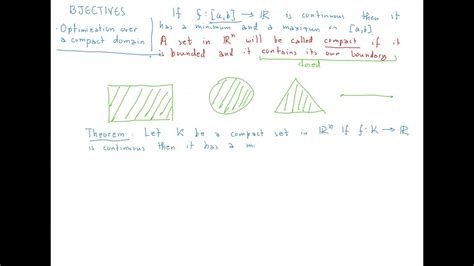 BJECTIVES
· Optimization over
a compact domain
If f: [a,b] → ℝ is continuous then it
has a minimum and a maximum on [a,b]
A set in ℝⁿ will be called compact if it
is bounded and it contains its own boundary.
closed
Theorem: Let K be a compact set in ℝⁿ If f: K → ℝ
is continuous then it has a m